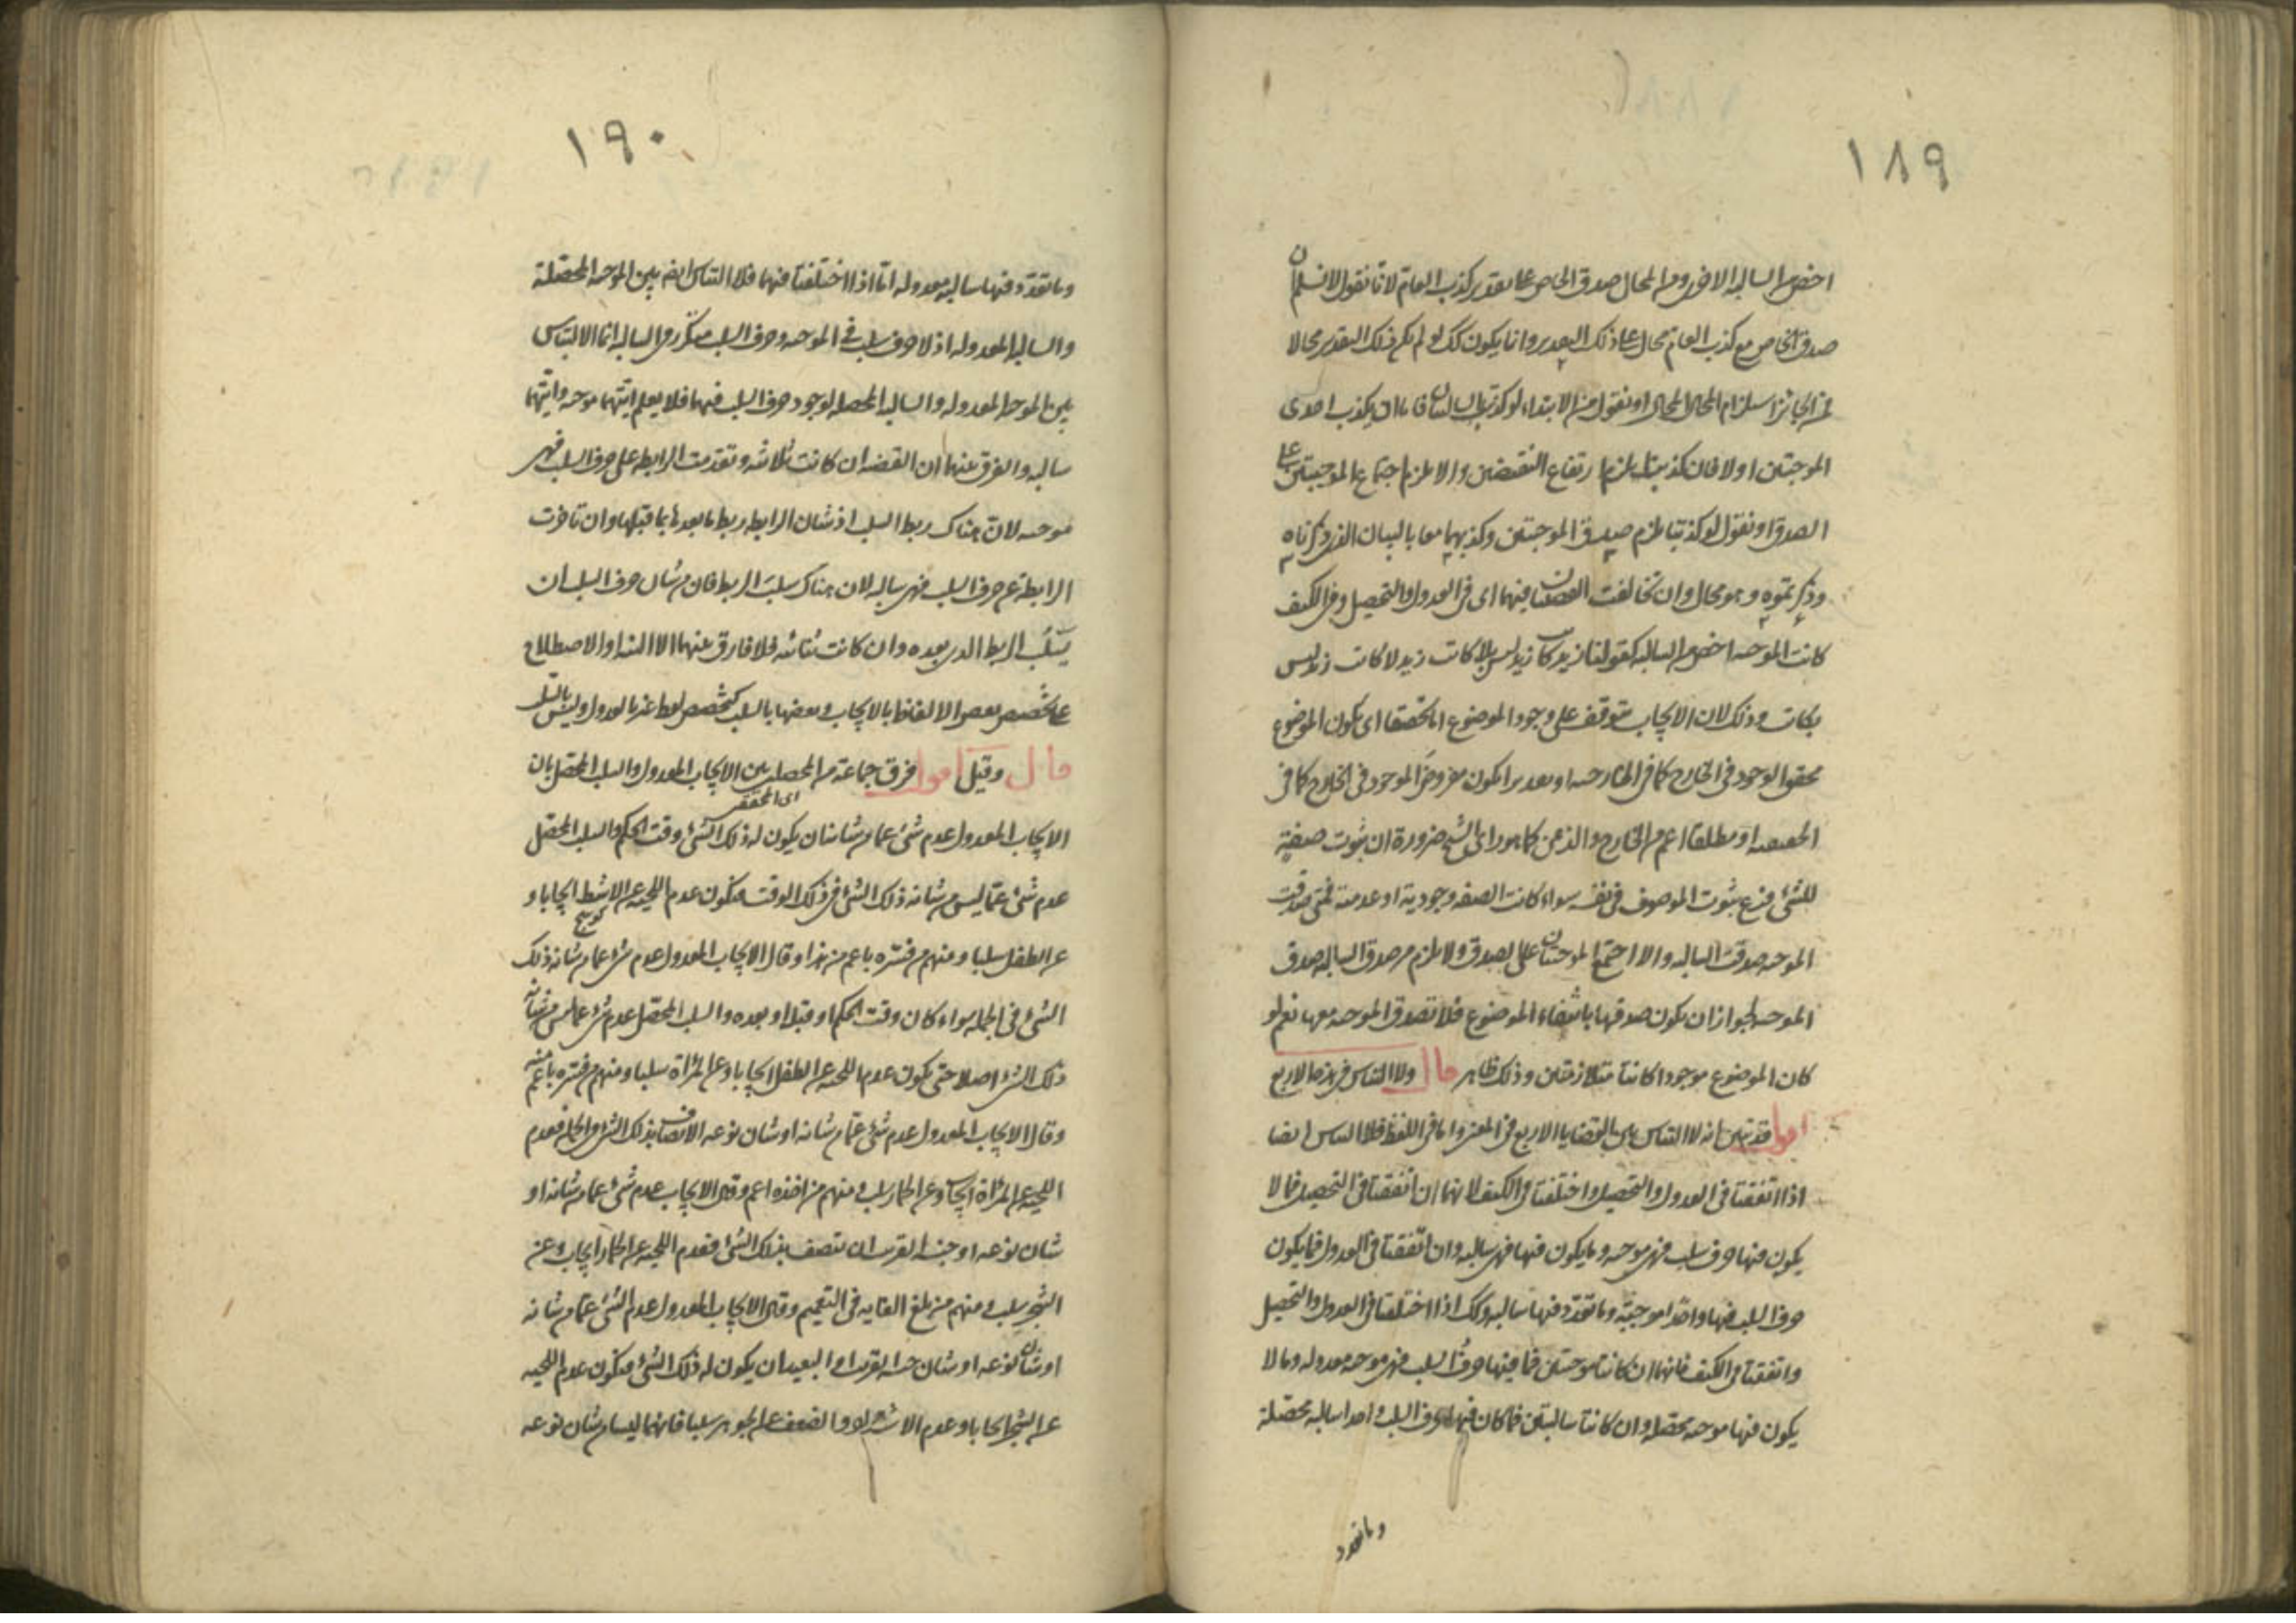 ١٨٩
اخص من السالبة الاخرى ومن المحال صدق الخاص على تقدير كذب العام لانا نقول لا نسلم ان
صدق الخاص مع كذب العام محال على ذلك التقدير وانما يكون كك لو لم يكن ذلك التقدير محالا
فمن الجائز استلزام المحال المحال او نقول من الابتداء لو كذبت السالبتان فاما ان يكذب احدى
الموجبتين اولا فان كذبت يلزم ارتفاع النقيضين والا يلزم اجتماع الموجبتين على
الصدق او نقول لو كذبتا يلزم صدق الموجبتين وكذبهما معا بالبيان الذي ذكرناه
وذكر تموه وهو محال وان تخالفت القضيتان فيهما اى فى العدول والتحصيل وفى الكيف
كانت الموجبة اخص من السالبة كقولنا زيد كاتب زيد ليس بلا كاتب زيد لا كاتب زيد ليس
بكاتب وذلك لان الايجاب يتوقف على وجود الموضوع اما محققا اى يكون الموضوع
محقق الوجود فى الخارج كما فى الخارجية او مقدرا يكون مفروض الوجود فى الخارج كما فى
الحقيقية او مطلقا اعم من الخارج والذهن كما هو راى الشيخ ضرورة ان ثبوت صفة
للشئ فرع ثبوت الموصوف فى نفسه سواء كانت الصفة وجودية او عدمية فمتى صدقت
الموجبة صدقت السالبة والا اجتمع الموجبتان على الصدق ولا يلزم من صدق السالبة صدق
الموجبة لجواز ان يكون صدقها بانتفاء الموضوع فلا تصدق الموجبة معها نعم لو
كان الموضوع موجودا كانتا متلازمتين وذلك ظاهر قال ولا التباس فى هذه الاربع
اقول قد تبين انه لا التباس بين القضايا الاربع فى المعنى واما فى اللفظ فلا التباس ايضا
اذا اتفقتا فى العدول والتحصيل واختلفتا فى الكيف لانهما ان اتفقتا فى التحصيل فما لا
يكون فيها حرف سلب فهى موجبة وما يكون فيها فهى سالبة وان اتفقتا فى العدول فما يكون
حرف السلب فيها واحدا موجبة وما تعدد فيها سالبة وكك اذا اختلفتا فى العدول والتحصيل
واتفقتا فى الكيف فانهما ان كانتا موجبتين فما فيها حرف السلب فهى موجبة معدولة وما لا
يكون فيها موجبة محصلة وان كانتا سالبتين فما كان فيها حرف السلب واحدا سالبة محصلة
وما تعدد
١٩٠
وما تعدد فيها سالبة معدولة اما اذا اختلفتا فيهما فلا التباس ايضا بين الموجبة المحصلة
والسالبة المعدولة اذ لا حرف سلب فى الموجبة وحرف السلب متكرر فى السالبة انما الالتباس
بين الموجبة المعدولة والسالبة المحصلة لوجود حرف السلب فيهما فلا يعلم ايتهما موجبة وايتهما
سالبة والفرق بينهما ان القضية ان كانت ثلاثية وتقدمت الرابطة على حرف السلب فهى
موجبة لان هناك ربط السلب اذ شان الرابطة ربط ما بعدها بما قبلها وان تاخرت
الرابطة عن حرف السلب فهى سالبة لان هناك سلب الربط فان من شان حرف السلب ان
يسلب الربط الذى بعده وان كانت ثنائية فلا فارق بينهما الا النية او الاصطلاح
على تخصيص بعض الالفاظ بالايجاب وبعضها بالسلب كتخصيص لفظ غير بالعدول وليس بالسلب
قال وقيل اقول فرق جماعة من المحصلين بين الايجاب المعدول والسلب المحصل بان
اى المحقق
الايجاب المعدول عدم شئ عما من شانه ان يكون له ذلك الشئ وقت الحكم والسلب المحصل
عدم شئ عما ليس من شانه ذلك الشئ فى ذلك الوقت فيكون عدم اللحية عن الاثط ايجابا و
كوسج
عن الطفل سلبا ومنهم من فسره باعم من هذا وقال الايجاب المعدول عدم شئ عما من شانه ذلك
الشئ فى الجملة سواء كان وقت الحكم او قبله او بعده والسلب المحصل عدم شئ عما ليس من شانه
ذلك الشئ اصلا حتى يكون عدم اللحية عن الطفل ايجابا وعن المراة سلبا ومنهم من فسره باعم منه
وقال الايجاب المعدول عدم شئ عما من شانه او شان نوعه الاتصاف بذلك الشئ فى الجملة فعدم
اللحية عن المراة ايجاب وعن الحمار سلب ومنهم من اخذه اعم وقال الايجاب عدم شئ عما من شانه او
شان نوعه او جنسه القريب ان يتصف بذلك الشئ فعدم اللحية عن الحمار ايجاب وعن
الشجر سلب ومنهم من بلغ الغاية فى التعميم وقال الايجاب المعدول عدم الشئ عما من شانه
او شان نوعه او شان جنسه القريب او البعيد ان يكون له ذلك الشئ فيكون عدم اللحية
عن الشجر ايجابا وعدم الاشتداد والضعف عن الجوهر سلبا فانهما ليسا من شان نوعه